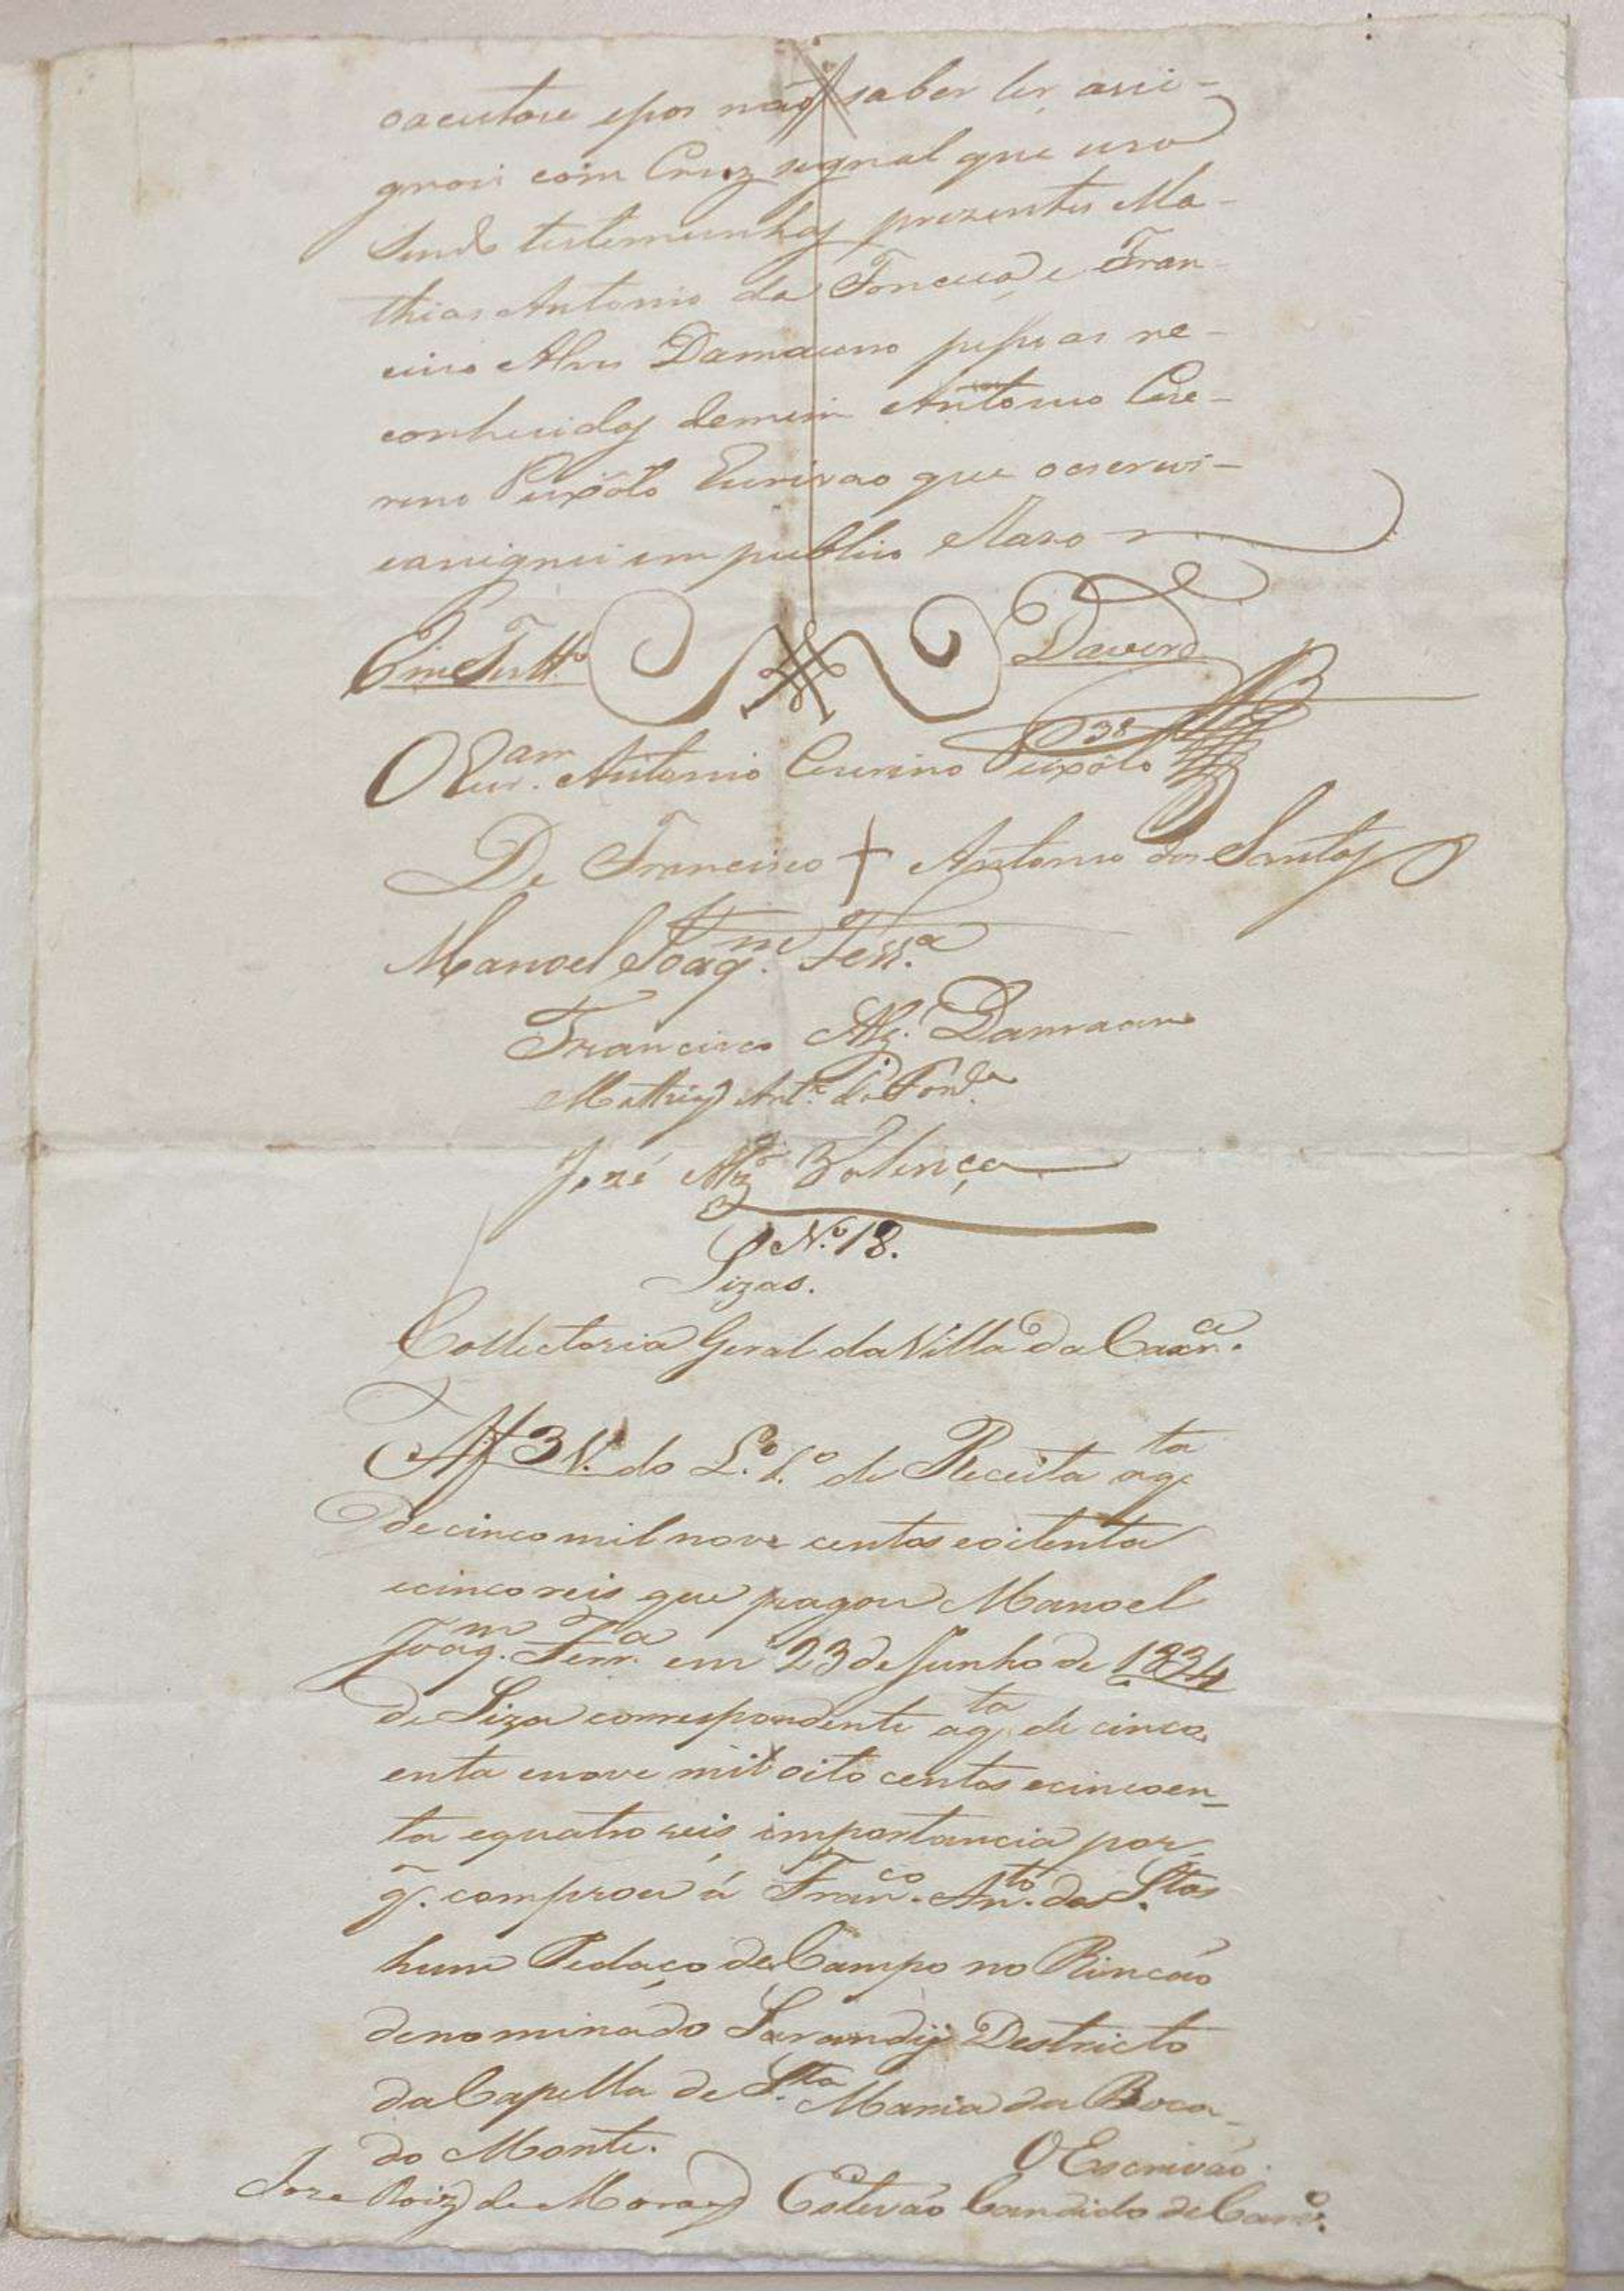 oaceitou e por não saber ler assi-
gnou com Cruz segnal que uso
Sendo testemunhas prezentes Ma-
thias Antonio da Fonceca e Fran-
cisco Alves Damaceno pessoas re-
conhecidas de mim Antonio Cese-
rino Peixôto Escrivao que o escrevi-
e assignei em publico e Razo
Em Testº Daverd
O Escr.am Antonio Ceserino Peixôto
De Francisco + Antonio dos Santos
Manoel Joaq.m Ferr.a
Francisco Alz. Damaceno
Mathias Ant.º da Fon.ca
José Valença
N.º 18.
Sizas.
Collectoria Geral da Villa da Caxr.a
Af 3 V. do L.º 1.º de Receita aq.ta
de cinco mil nove centos e oitenta
e cinco reis que pagou Manoel
Joaq.m Ferr.a em 23 de Junho de 1834
de Siza correspondente aq.ta de cinco
enta e nove mil oito centos e cincoen-
ta e quatro reis, importancia por
q.' comprou á Fran.co An.to dos S.tos
hum Pedaço de Campo no Rincão
denominado Sarandÿ Destricto
da Capella de S.ta Maria da Boca-
do Monte.
O Escrivão.
Joze Roiz de Moraes Estevão Candido de Carv.º